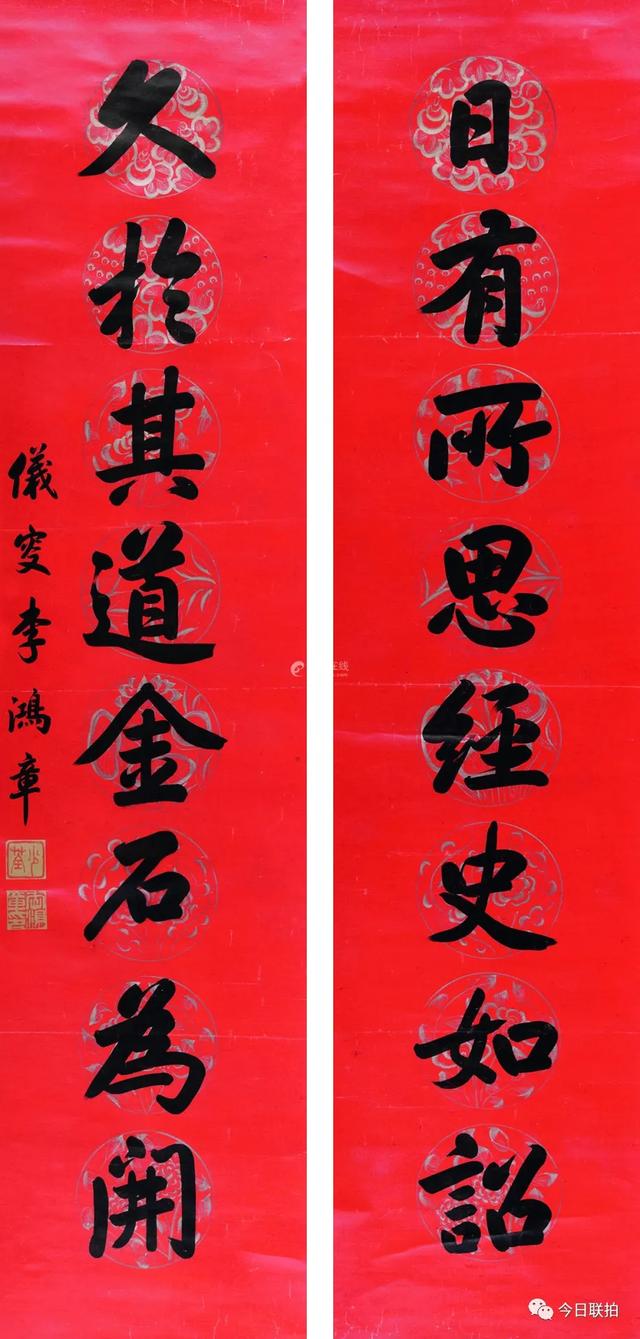 日有所思經史如詔
久於其道金石為開
儀叟李鴻章
少荃
今日联拍